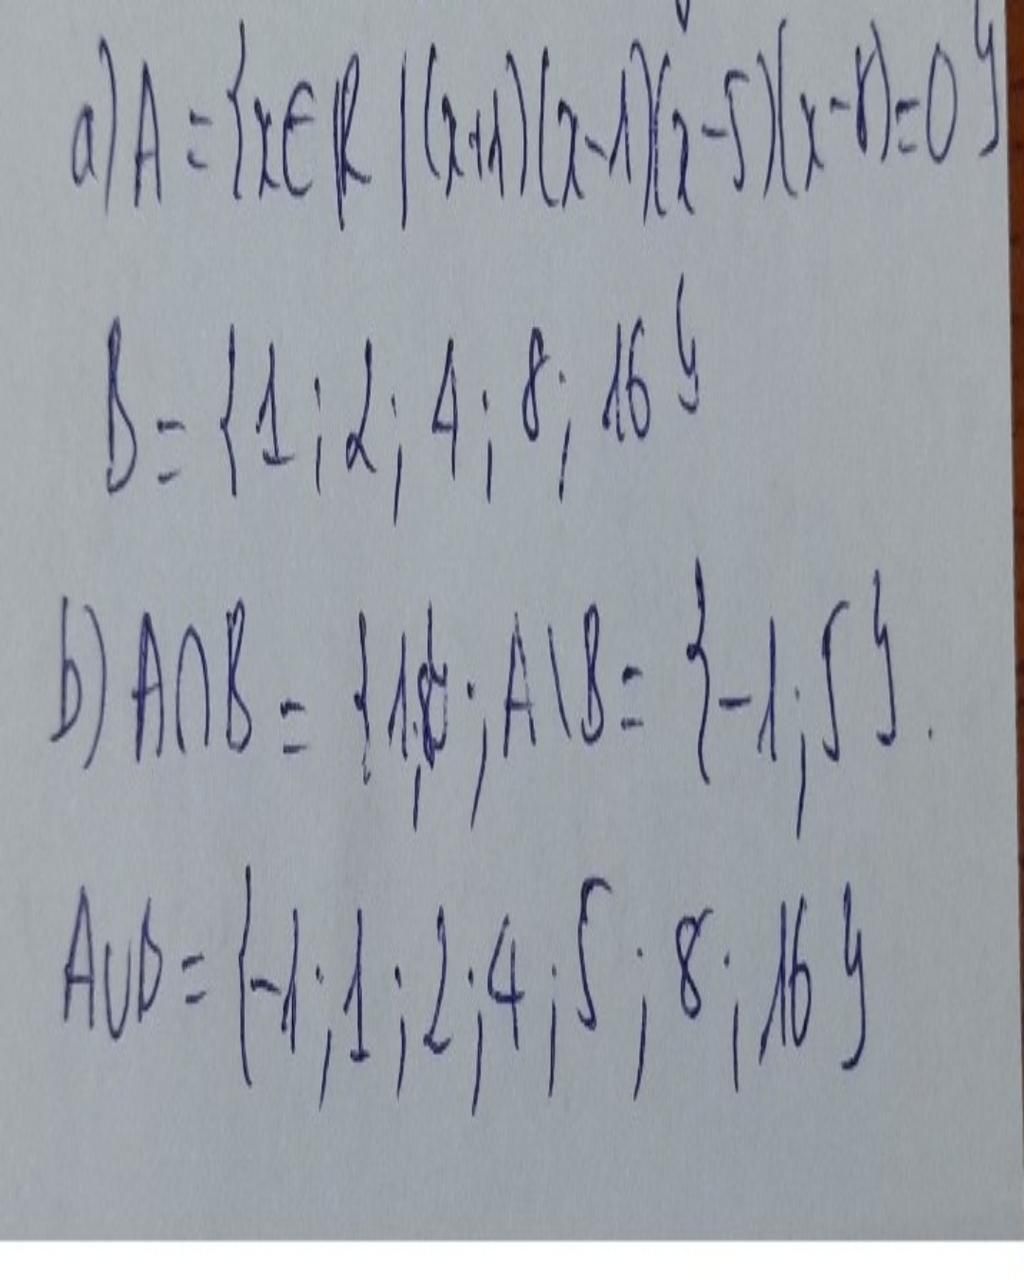 a) A = {x ∈ ℝ | (x+1)(x-1)(x-5)(x-8)=0}
B = {1 ; 2 ; 4 ; 8 ; 16}
b) A∩B = {1;8}; A\B = {-1 ; 5}.
A∪B = {-1 ; 1 ; 2 ; 4 ; 5 ; 8 ; 16}